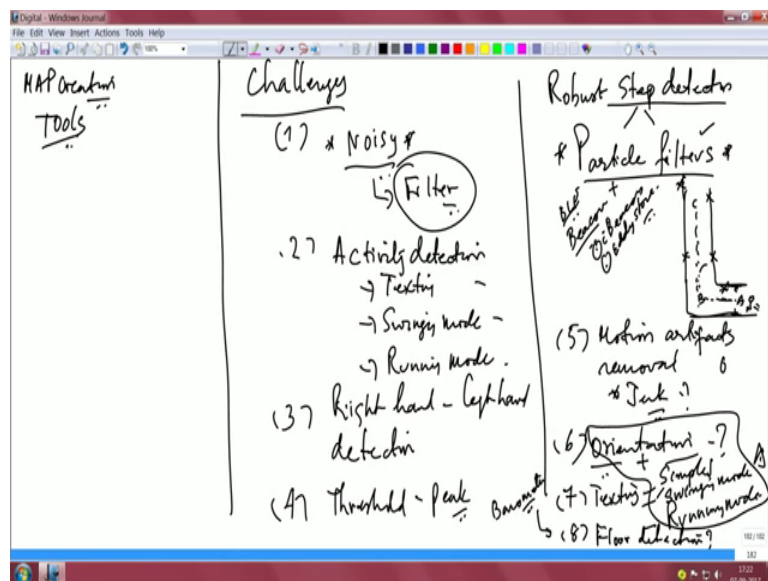 Digital - Windows Journal
File Edit View Insert Actions Tools Help
100%
MAP Creations
Tools
Challenges
(1) * Noisy *
↳ Filter
.2) Activity detection
→ Texting -
→ Swinging mode -
→ Running mode.
(3) Right hand - Left hand
detection
(4) Threshold - Peak
Robust Step detection
* Particle filters *
BLE
Beacon +
iBeacon
Eddystone
C
B
A
(5) Motion artifacts
removal
* Jerk ?
(6) Orientation - ?
+
(7) Texting + Simple
Swinging mode
Running mode
A
Barometer
↳ (8) Floor detection?
182 / 182
182
17:22